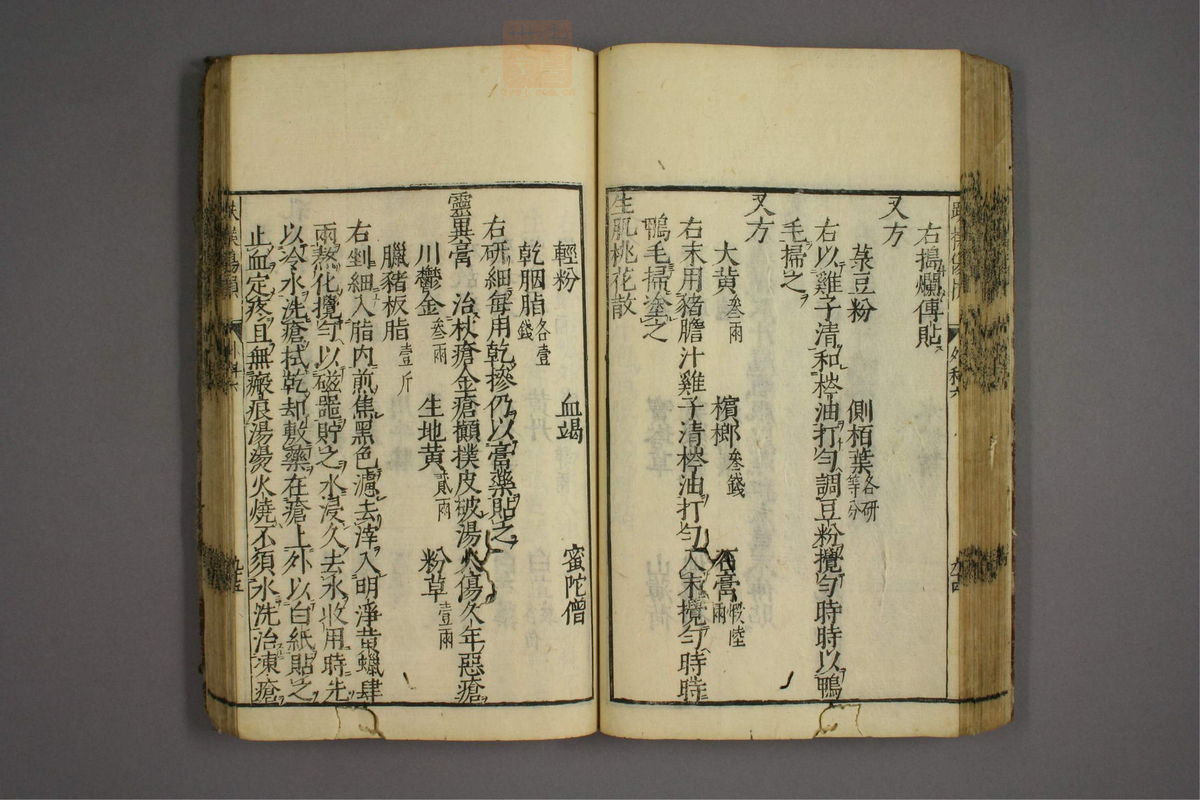 右搗爛傅貼
又方
菉豆粉 側栢葉各研等分
右以雞子清和桚油打勻調豆粉攪勻時時以鴨
毛掃之
又方
大黄叁兩 檳榔叁錢 石膏煅陸兩
右末用豬膽汁雞子清桚油打勻入末攪勻時時
鴨毛掃塗之
生肌桃花散
輕粉 血竭 蜜陀僧
乾胭脂各壹錢
右研細每用乾摻仍以膏藥貼之
靈異膏 治杖瘡金瘡顚撲皮破湯火傷久年惡瘡
川鬱金叁兩 生地黄貳兩 粉草壹兩
臘豬板脂壹斤
右剉細入脂内煎焦黑色濾去滓入明淨黄蠟肆
兩熬化攪勻以磁噐貯之水浸久去水收用時先
以冷水洗瘡拭乾却敷藥在瘡上外以白紙貼之
止血定疼且無瘢痕湯燙火燒不須水洗治凍瘡